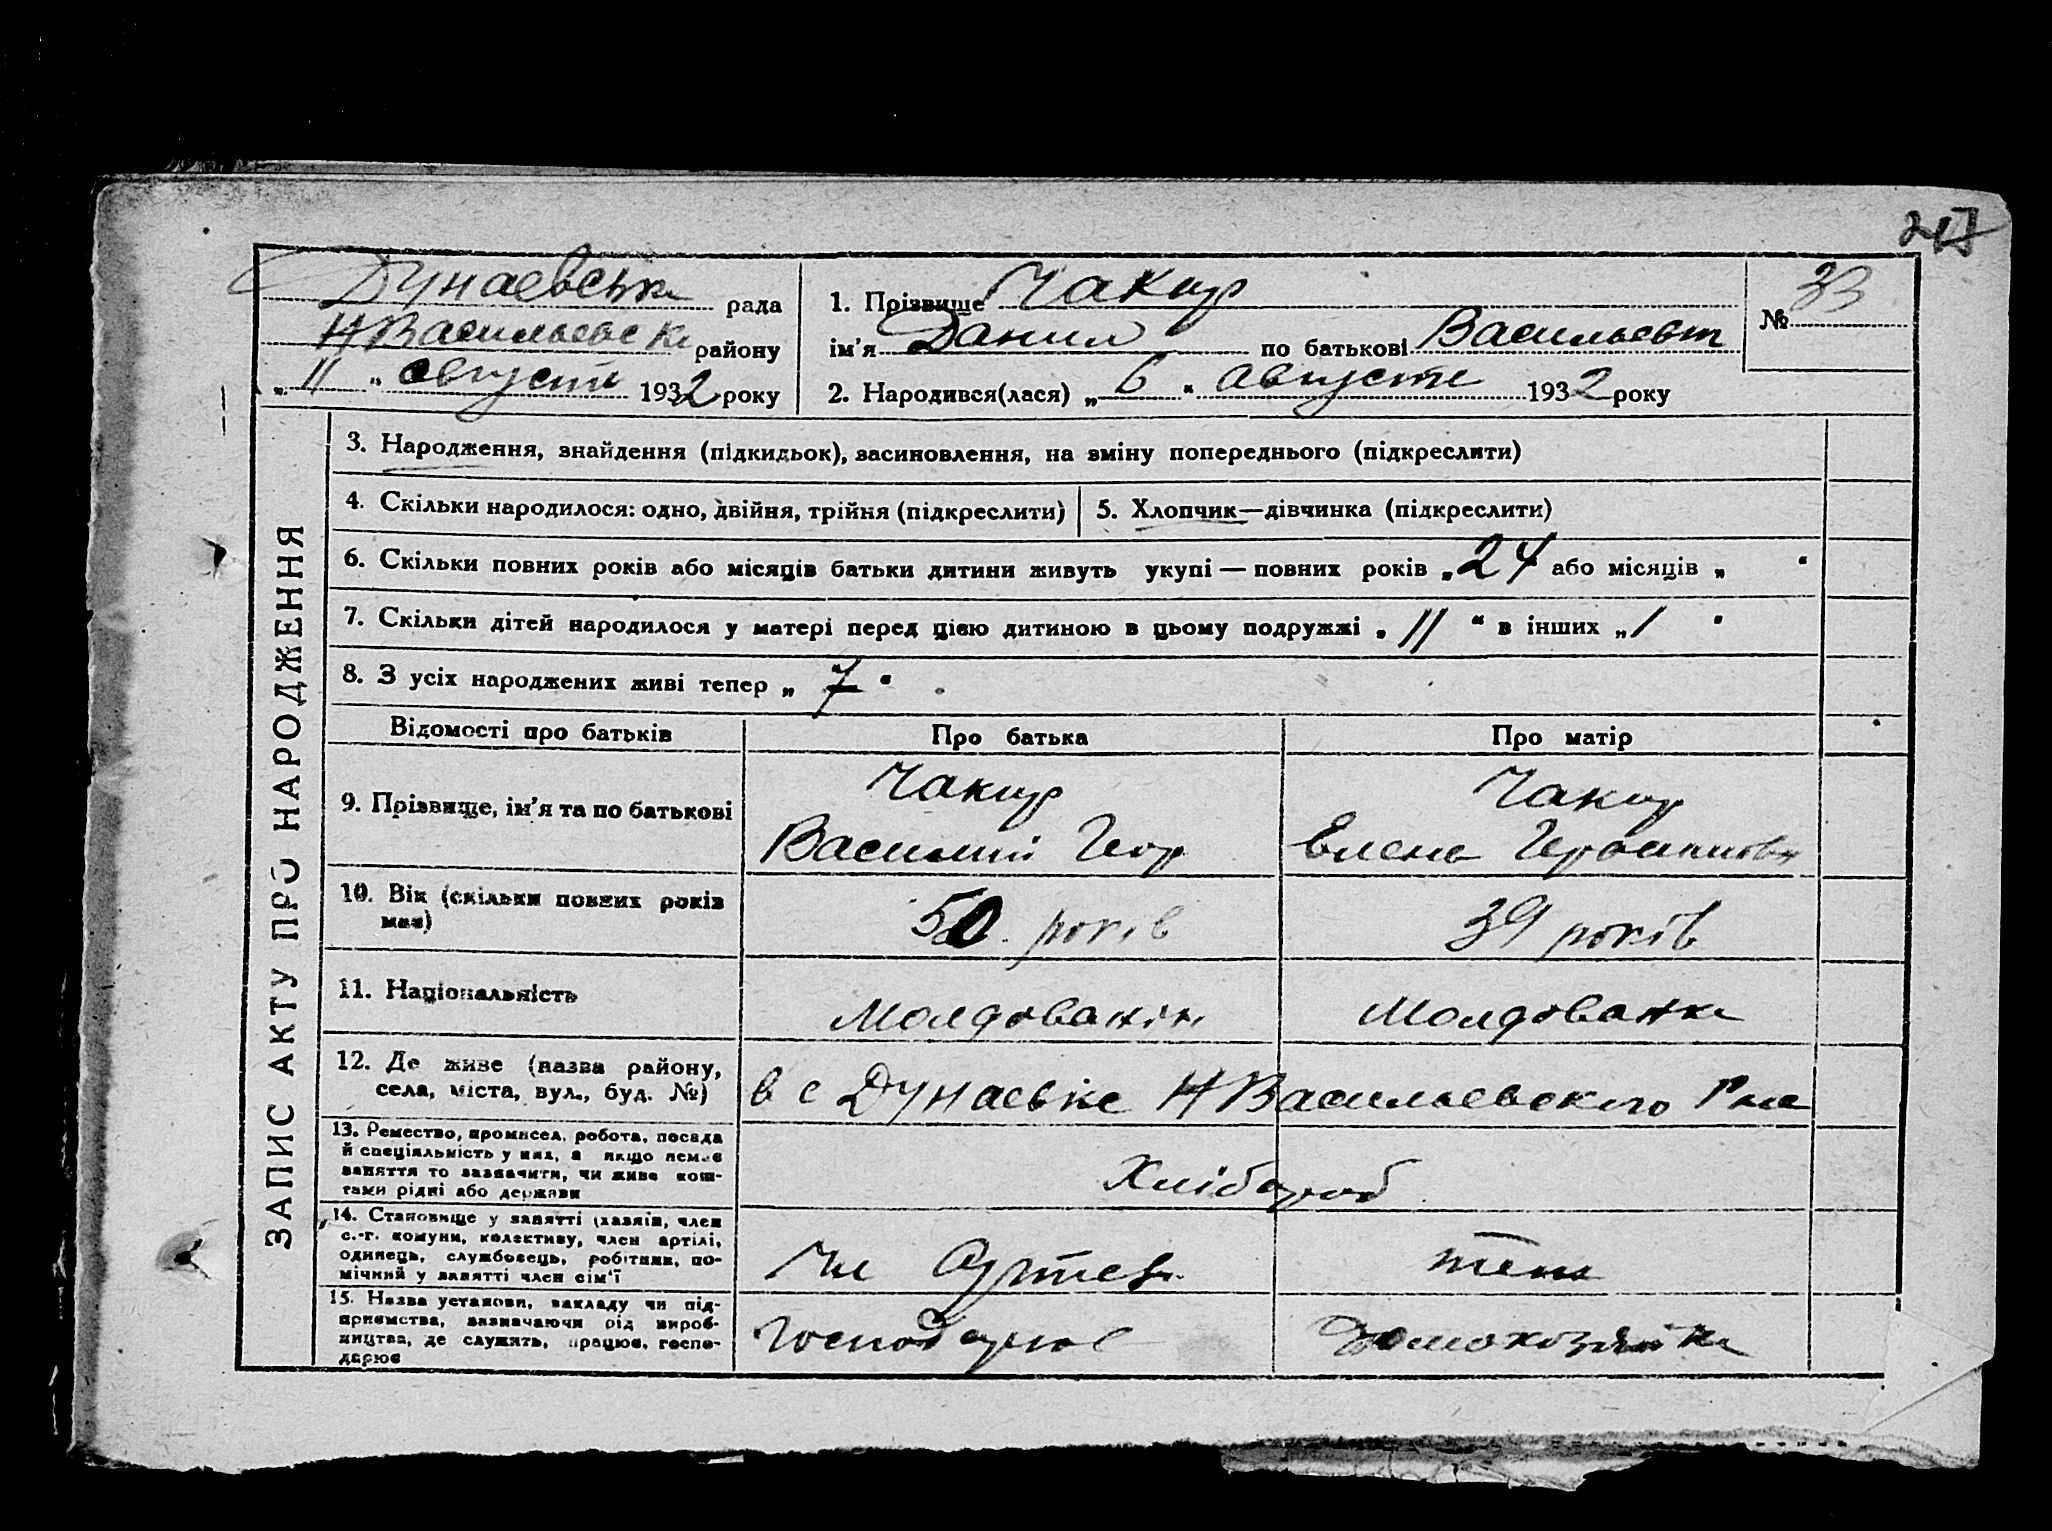 217
Дунаевська рада
Н Васильевск району
„ 11 " августа 1932 року
1. Прізвище Чакир
ім'я Данил по батькові Васильевич
2. Народився(лася) „ 6 " августа 1932 року
№ 33
ЗАПИС АКТУ ПРО НАРОДЖЕННЯ
3. Народження, знайдення (підкидьок), засиновлення, на зміну попереднього (підкреслити)
4. Скільки народилося: одно, двійня, трійня (підкреслити)
5. Хлопчик—дівчинка (підкреслити)
6. Скільки повних років або місяців батьки дитини живуть укупі — повних років „ 24 або місяців „ "
7. Скільки дітей народилося у матері перед цією дитиною в цьому подружжі „ 11 " в інших „ 1 "
8. З усіх народжених живі тепер „ 7 "
Відомості про батьків Про батька Про матір
9. Прізвище, ім'я та по батькові
Чакир
Василий Геор
Чакир
Елена
10. Вік (скільки повних років має)
50 років
39 років
11. Національність
молдованін
молдованка
12. Де живе (назва району,
села, міста, вул., буд. №)
в с Дунаевке Н Васильевского Р на
13. Ремество, промисел, робота, посада
й спеціяльність у них, а якщо немає
заняття то зазначити, чи живе кош-
тами рідні або держави
Хлібороб
14. Становище у занятті (хазяїн, член
с.-г. комуни, колективу, член артілі,
одинець, службовець, робітник, по-
мічний у занятті член сім'ї
Чл Артеві
член
15. Назва установи, закладу чи під-
приємства, зазначаючи рід вироб-
ництва, де служить, працює, госпо-
дарює
господарює
домохозяйка